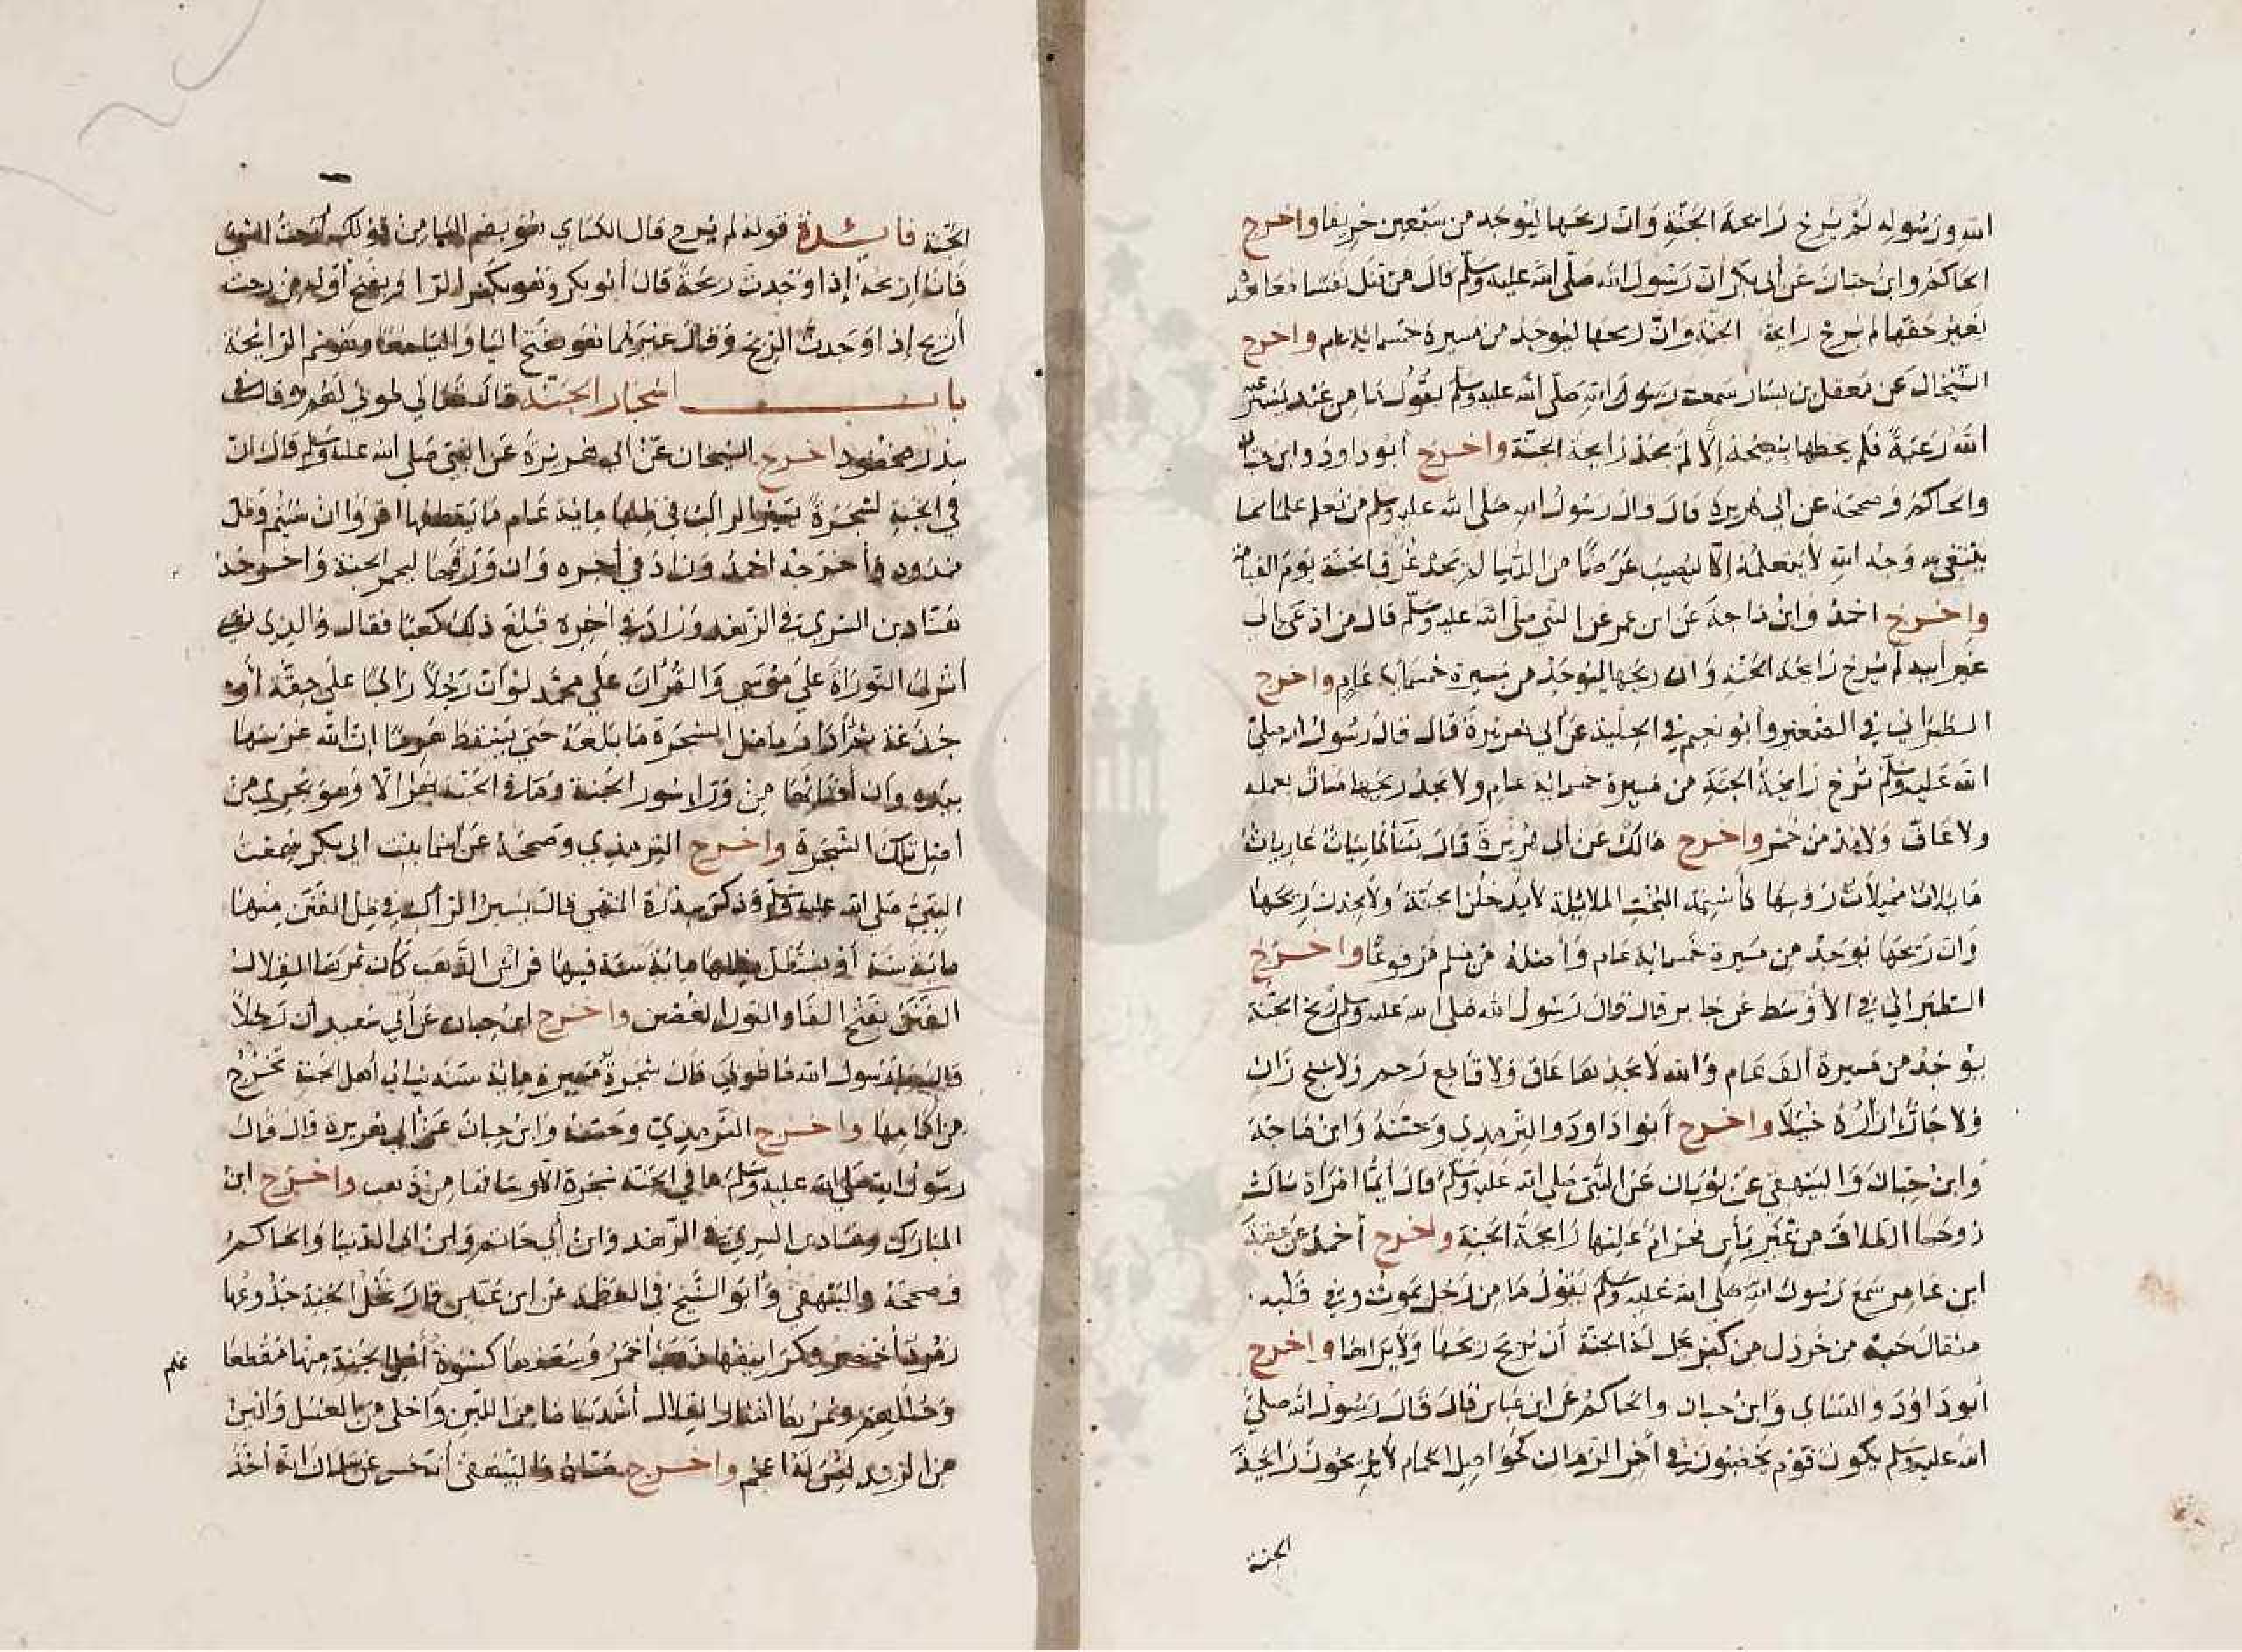 الله ورسوله لم يرح رايحة الجنة وان ريحها ليوجد من سبعين خريفا واخرج
الحاكم وابن حبان عن أبي بكر أن رسول الله صلى الله عليه وسلم قال من قتل نفسا معاهد
بغير حقها لم يرح رايحة الجنة وان ريحها ليوجد من مسيرة خمسماية عام واخرج
الشيخان عن معقل بن يسار سمعت رسول الله صلى الله عليه وسلم يقول ما من عبد يسترعيه
الله رعية فلم يحطها بنصحة إلا لم يجد رايحة الجنة واخرج أبو داود وابن حبان
والحاكم وصححه عن أبي هريرة قال قال رسول الله صلى الله عليه وسلم من تعلم علما مما
يبتغي به وجه الله لا يتعلمه إلا ليصيب عرضا من الدنيا لم يجد عرف الجنة يوم القيامة
واخرج احمد وابن ماجة عن ابن عمر عن النبي صلى الله عليه وسلم قال من ادعى الى
غير أبيه لم يرح رايحة الجنة وان ريحها ليوجد من مسيرة خمسماية عام واخرج
الطبراني في الصغير وأبو نعيم في الحلية عن أبي هريرة قال قال رسول الله صلى
الله عليه وسلم تُرح رايحة الجنة من مسيرة خمسماية عام ولا يجد ريحها منان بعمله
ولا عاق ولا مدمن خمر واخرج مالك عن أبي هريرة قال نسأ كاسيات عاريات
مايلات مميلات رؤسها كأسنمة البخت المائلة لا يدخلن الجنة ولا يجدن ريحها
وان ريحها يوجد من مسيرة خمسماية عام وأصله من مسلم مرفوعا واخرج
الطبراني في الأوسط عن جابر قال قال رسول الله صلى الله عليه وسلم ريح الجنة
يوجد من مسيرة ألف عام والله لا يجدها عاق ولا قاطع رحم ولا شيخ زان
ولا جار ازاره خيلا واخرج أبوا داود والترمذي وحسنه وابن ماجة
وابن حبان والبيهقي عن ثوبان عن النبي صلى الله عليه وسلم قال أيما امرأة سالت
زوجها الطلاق من غير بأس فحرام عليها رايحة الجنة واخرج أحمد عن عقبة
ابن عامر سمع رسول الله صلى الله عليه وسلم يقول ما من رجل يموت وفي قلبه
مثقال حبة من خردل من كبر تحل له الجنة أن يريح ريحها ولا يراها واخرج
أبو داود والنساي وابن حبان والحاكم عن ابن عباس قال قال رسول الله صلى
الله عليه وسلم يكون قوم يخضبون في أخر الزمان كحواصل الحمام لا يريحون رايحة
الجنة
الجنة فائدة قوله لم يرح قال الكساي هو بضم اليا من قولك أرحت الشيء
فانا إريحه إذا وجدت ريحه قال أبو بكر وهو بكسر الرا وبفتح أوله من رحت
أريح إذا وجدت الريح وقال غيرهما هو بفتح اليا والرا معا وهو شم الرايحة
باب اشجار الجنة قال تعالى طوبى لهم وقال في
سدر مخضود اخرج الشيخان عن ابي هريرة عن النبي صلى الله عليه وسلم قال ان
في الجنة لشجرة يسير الراكب في ظلها ماية عام ما يقطعها اقرؤا ان شيتم وظل
ممدود وأخرجه احمد وزاد في أخره وان ورقها ليخمر الجنة واخرجه
هناد بن السري في الزهد وزاد في اخره فبلغ ذلك كعبا فقال والذي
أنزل التوراة على موسى والقرأن على محمد لو أن رجلا راكبا على حقة أو
جذعة ثم أدار بأصل الشجرة ما بلغه حتى يسقط هرما ان الله غرسها
بيده وان أفنانها من وراء سور الجنة وما في الجنة نهر الا وهو يجري من
أصل تلك الشجرة واخرج الترمذي وصححه عن اسما بنت ابي بكر سمعت
النبي صلى الله عليه وسلم وذكر سدرة المنتهى قال يسير الراكب في ظل الفنن منها
ماية سنة أو يستظل بظلها ماية سنة فيها فراش الذهب كأن ثمرها القلال
الفنن بفتح الفا والنون الغصن واخرج ابن حبان عن أبي سعيد أن رجلا
قال يا رسول الله ما طوبى قال شجرة مسيرة ماية سنة ثياب أهل الجنة تخرج
من اكمامها واخرج الترمذي وحسنه وابن حبان عن أبي هريرة قال قال
رسول الله صلى الله عليه وسلم ما في الجنة شجرة الا وساقها من ذهب واخرج ابن
المبارك وهناد بن السري في الزهد وابن أبي حاتم وابن ابي الدنيا والحاكم
وصححه والبيهقي وأبو الشيخ في العظمة عن ابن عباس قال نخل الجنة جذوعها
زمرد أخضر وكرانيفها ذهب أحمر وسعفها كسوة أهل الجنة منها مقطعاتهم
وحللهم وثمرها امثال القلال أشد بياضا من اللبن واحلى من العسل وألين
من الزبد ليس له اعجم واخرج هناد والبيهقي عن سلمان انه أخذ